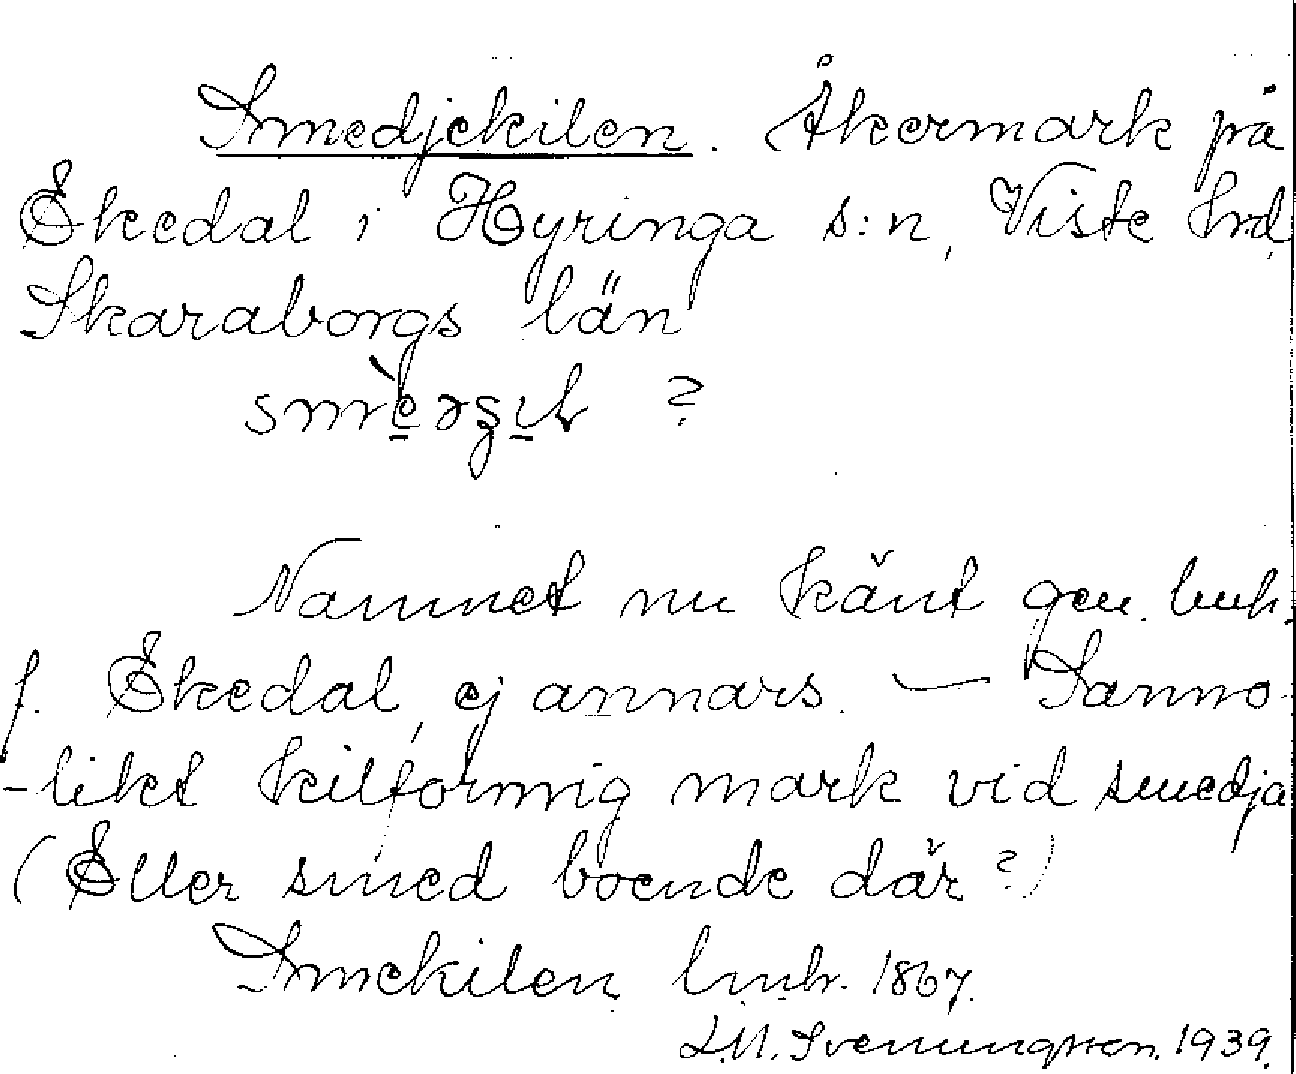 Smedjekilen. Åkermark på
Ekedal i Hyringa s:n, Viste hrd,
Skaraborgs län
?
Namnet nu känt gen. lmh.
f. Ekedal, ej annars. — Sanno-
-likt kilformig mark vid smedja
(Eller smed boende där?)
Smekilen lmh. 1867.
S.M. Svenungsson. 1939.